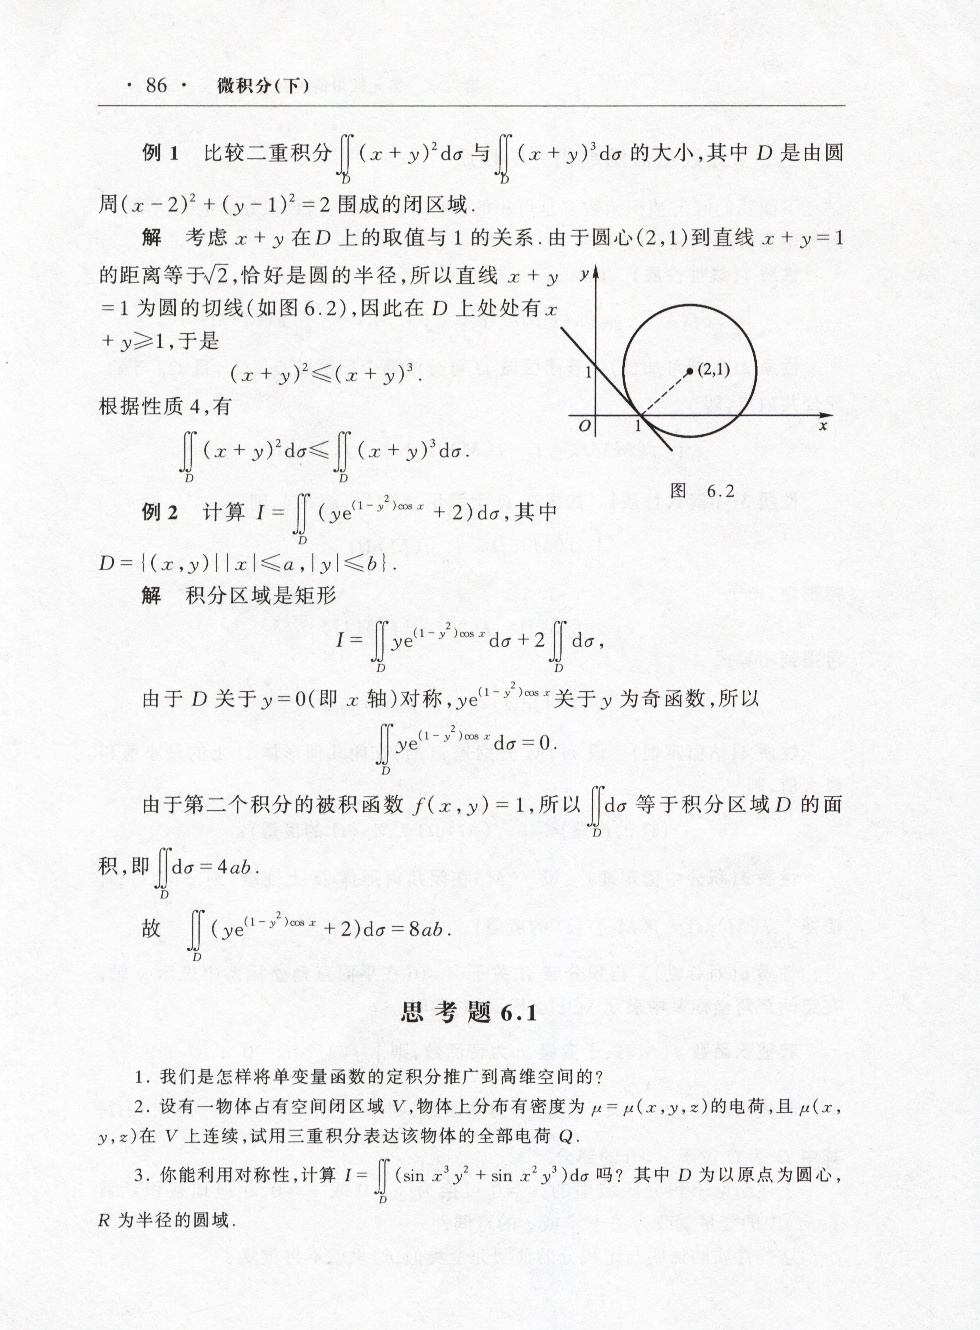 · 86 · 微积分(下)
例 1 比较二重积分∬_D (x + y)²dσ 与∬_D (x + y)³dσ 的大小,其中 D 是由圆
周(x - 2)² + (y - 1)² = 2 围成的闭区域.
解 考虑 x + y 在 D 上的取值与 1 的关系.由于圆心(2,1)到直线 x + y = 1
的距离等于√2,恰好是圆的半径,所以直线 x + y
= 1 为圆的切线(如图 6.2),因此在 D 上处处有 x
+ y≥1,于是
(x + y)²≤(x + y)³.
根据性质 4,有
∬_D (x + y)²dσ≤∬_D (x + y)³dσ.
y
1
(2,1)
O
1
x
图 6.2
例 2 计算 I = ∬_D (ye^{(1-y²)cos x} + 2)dσ,其中
D = {(x,y)||x|≤a,|y|≤b}.
解 积分区域是矩形
I = ∬_D ye^{(1-y²)cos x}dσ + 2∬_D dσ,
由于 D 关于 y = 0(即 x 轴)对称,ye^{(1-y²)cos x}关于 y 为奇函数,所以
∬_D ye^{(1-y²)cos x}dσ = 0.
由于第二个积分的被积函数 f(x,y) = 1,所以∬_D dσ 等于积分区域 D 的面
积,即∬_D dσ = 4ab.
故 ∬_D (ye^{(1-y²)cos x} + 2)dσ = 8ab.
思考题 6.1
1. 我们是怎样将单变量函数的定积分推广到高维空间的?
2. 设有一物体占有空间闭区域 V,物体上分布有密度为 μ = μ(x,y,z)的电荷,且 μ(x,
y,z)在 V 上连续,试用三重积分表达该物体的全部电荷 Q.
3. 你能利用对称性,计算 I = ∬_D (sin x³y² + sin x²y³)dσ 吗? 其中 D 为以原点为圆心,
R 为半径的圆域.